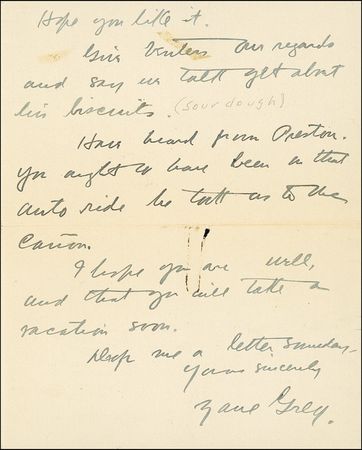 Hope you like it.
Give Venters our regards
and say we talk yet about
his biscuits. (sour dough)
Have heard from Preston.
You ought to have been on that
auto ride he took us to the
Cañon.
I hope you are well,
and that you will take a
vacation soon.
Drop me a letter someday.
Yours sincerely
Zane Grey.